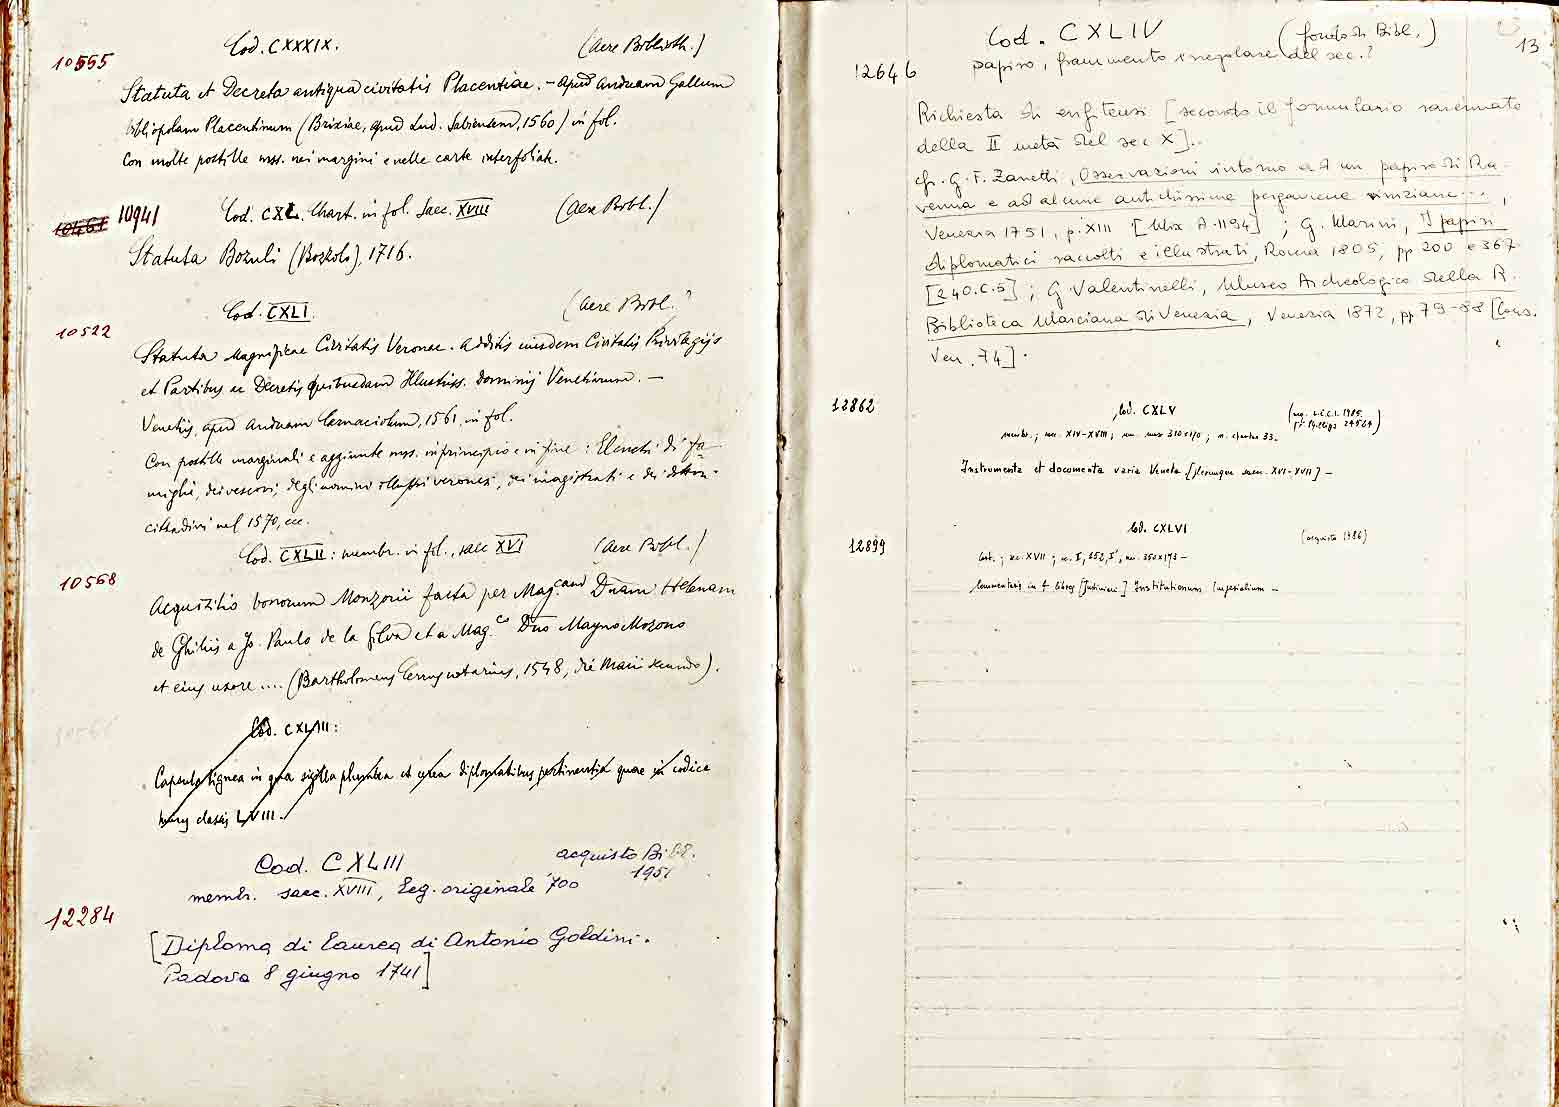 Cod. CXXXIX. (Aere Biblioth.)
10555
Statuta et Decreta antiqua civitatis Placentiae. - apud Andream Gallum
bibliopolam Placentinum (Brixiae, apud Lud. Sabiensem, 1560) in fol.
Con molte postille mss. nei margini e nelle carte interfoliate.
10941 Cod. CXL. Chart. in fol. saec. XVIII (Aere Bibl.)
Statuta Bozuli (Bozzolo), 1716.
Cod. CXLI. (Aere Bibl.?
10522
Statuta Magnificae Civitatis Veronae. Additis eiusdem Civitatis Privilegijs
et Partibus ac Decretis quibusdam Illustriss. Dominij Venetiarum. -
Venetiis, apud 1561, in fol.
Con postille marginali e aggiunte mss. in principio e in fine: Elenchi di fa-
miglie, dei vescovi, degli uomini illustri veronesi, dei magistrati e dei
cittadini nel 1570, ecc.
Cod. CXLII: membr. in fol., saec XVI (Aere Bibl.)
10568
Acquisitio bonorum Monzonii facta per Mag.cam Dnam Helenam
de Ghiliis a Jo. Paulo de la Silva et a Mag.co Dno Magno Mozono
et eius uxore .... (Bartholomeus notarius, 1548, die Maii secundo).
Cod. CXLIII:
Capsula lignea in qua sigilla plumbea et cerea diplomatibus pertinentia quae in codice
huius classis LVIII.
Cod. CXLIII acquisto Bibl.
membr. saec. XVIII, leg. originale '700 195
12284
[Diploma di laurea di Antonio Goldini.
Padova 8 giugno 1741]
13
Cod. CXLIV (fondo di Bibl.)
12646 papiro, frammento irregolare del sec.?
Richiesta di enfiteusi [secondo il formulario ravennate
della II metà del sec X]..
cfr. G. F. Zanetti, Osservazioni intorno ad un papiro di Ra-
venna e ad alcune antichissime pergamene viniziane...,
Venezia 1751, p. XIII [Misc A.1194]; G. Marini, I papiri
diplomatici raccolti e illustrati, Roma 1805, pp 200 e 367
[240.C.5]; G. Valentinelli, Museo Archeologico della R.
Biblioteca Marciana di Venezia, Venezia 1872, pp 79-88 [Cons.
Ven. 74].
12862 Cod. CXLV
membr.; sec. XIV-XVIII; mm. 310x210; n. chartae 33.
Instrumenta et documenta varia Veneta [plerumque saec. XVI-XVII] -
Cod. CXLVI
12899 (acquisto 1986)
cart.; sec. XVII; cc. I, 252, I'; mm. 250x173 -
Commentaria in 4 libros [Justiniani] Institutionum Imperialium -